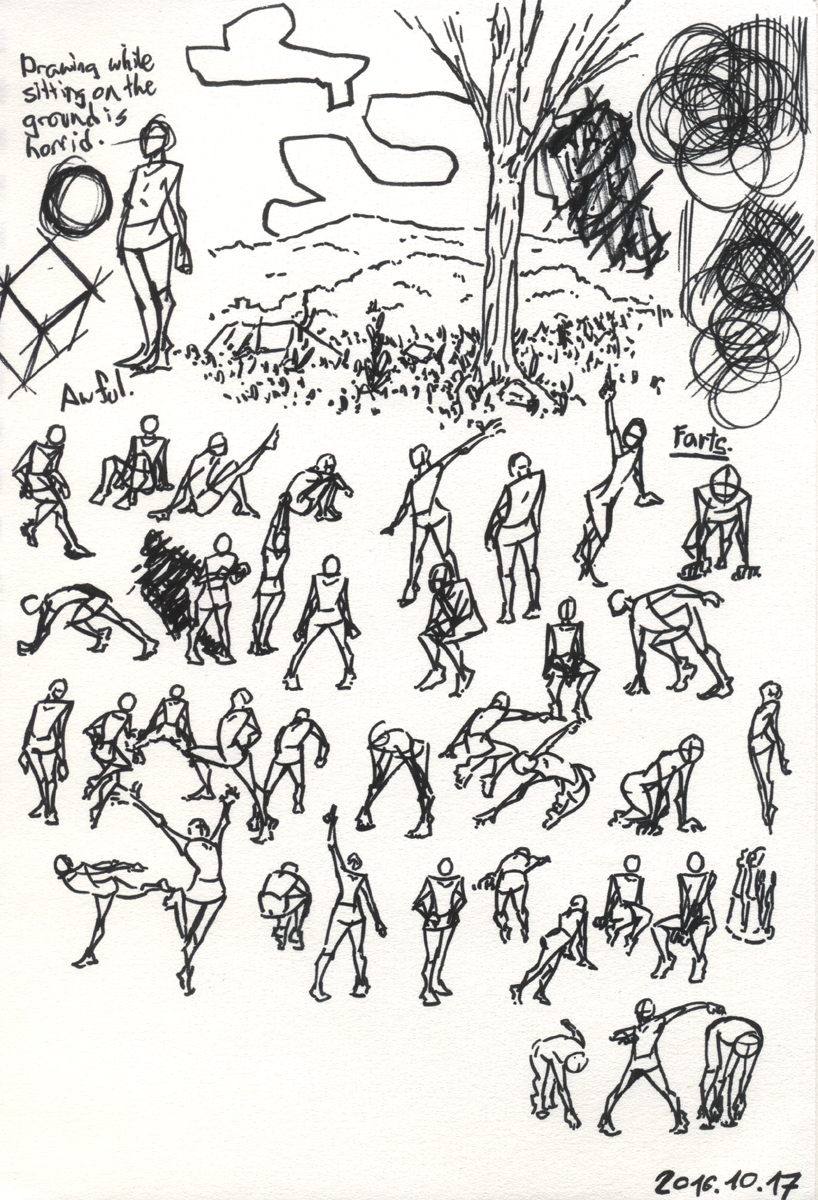 Drawing while
sitting on the
ground is
horrid.
Awful.
Farts.
2016.10.17